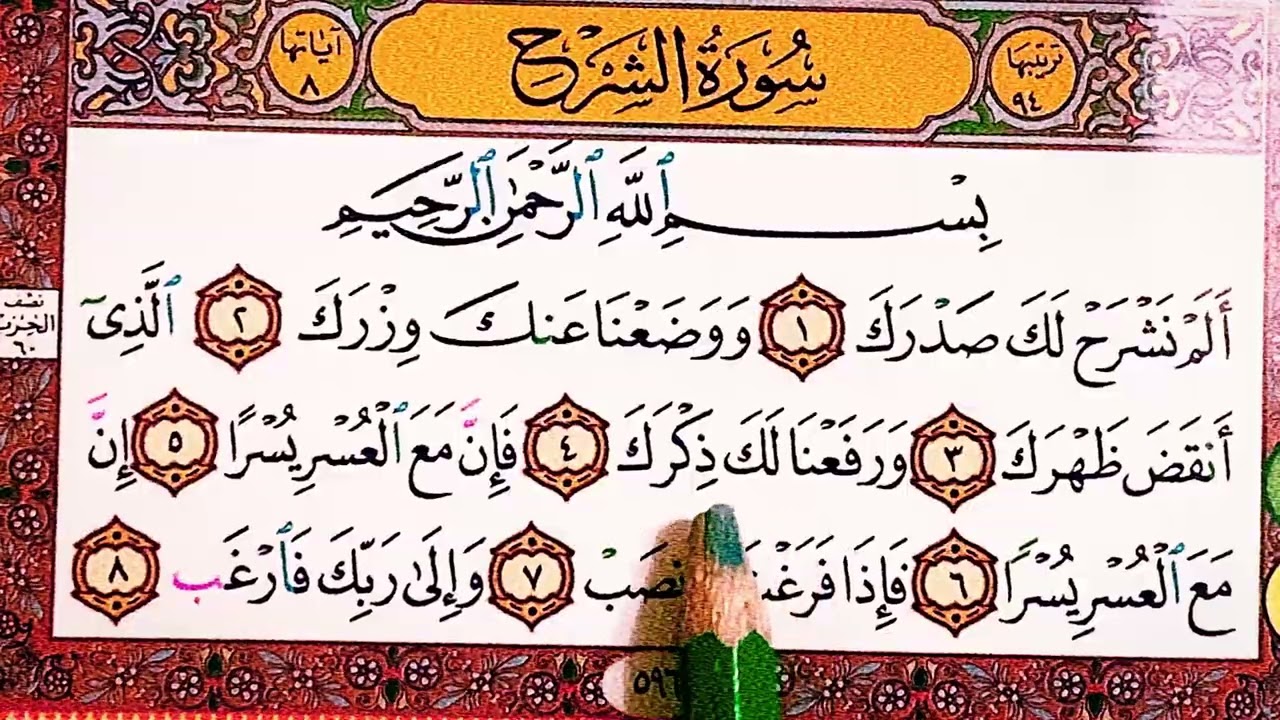 ترتيبها ٩٤
سُورَةُ الشَّرْحِ
آياتها ٨
بِسْمِ ٱللَّهِ ٱلرَّحْمَٰنِ ٱلرَّحِيمِ
أَلَمْ نَشْرَحْ لَكَ صَدْرَكَ ١ وَوَضَعْنَا عَنكَ وِزْرَكَ ٢ ٱلَّذِىٓ
نصف الحزب ٦٠
أَنقَضَ ظَهْرَكَ ٣ وَرَفَعْنَا لَكَ ذِكْرَكَ ٤ فَإِنَّ مَعَ ٱلْعُسْرِ يُسْرًا ٥ إِنَّ
مَعَ ٱلْعُسْرِ يُسْرًا ٦ فَإِذَا فَرَغْ نصَبْ ٧ وَإِلَىٰ رَبِّكَ فَٱرْغَب ٨
٥٩٦